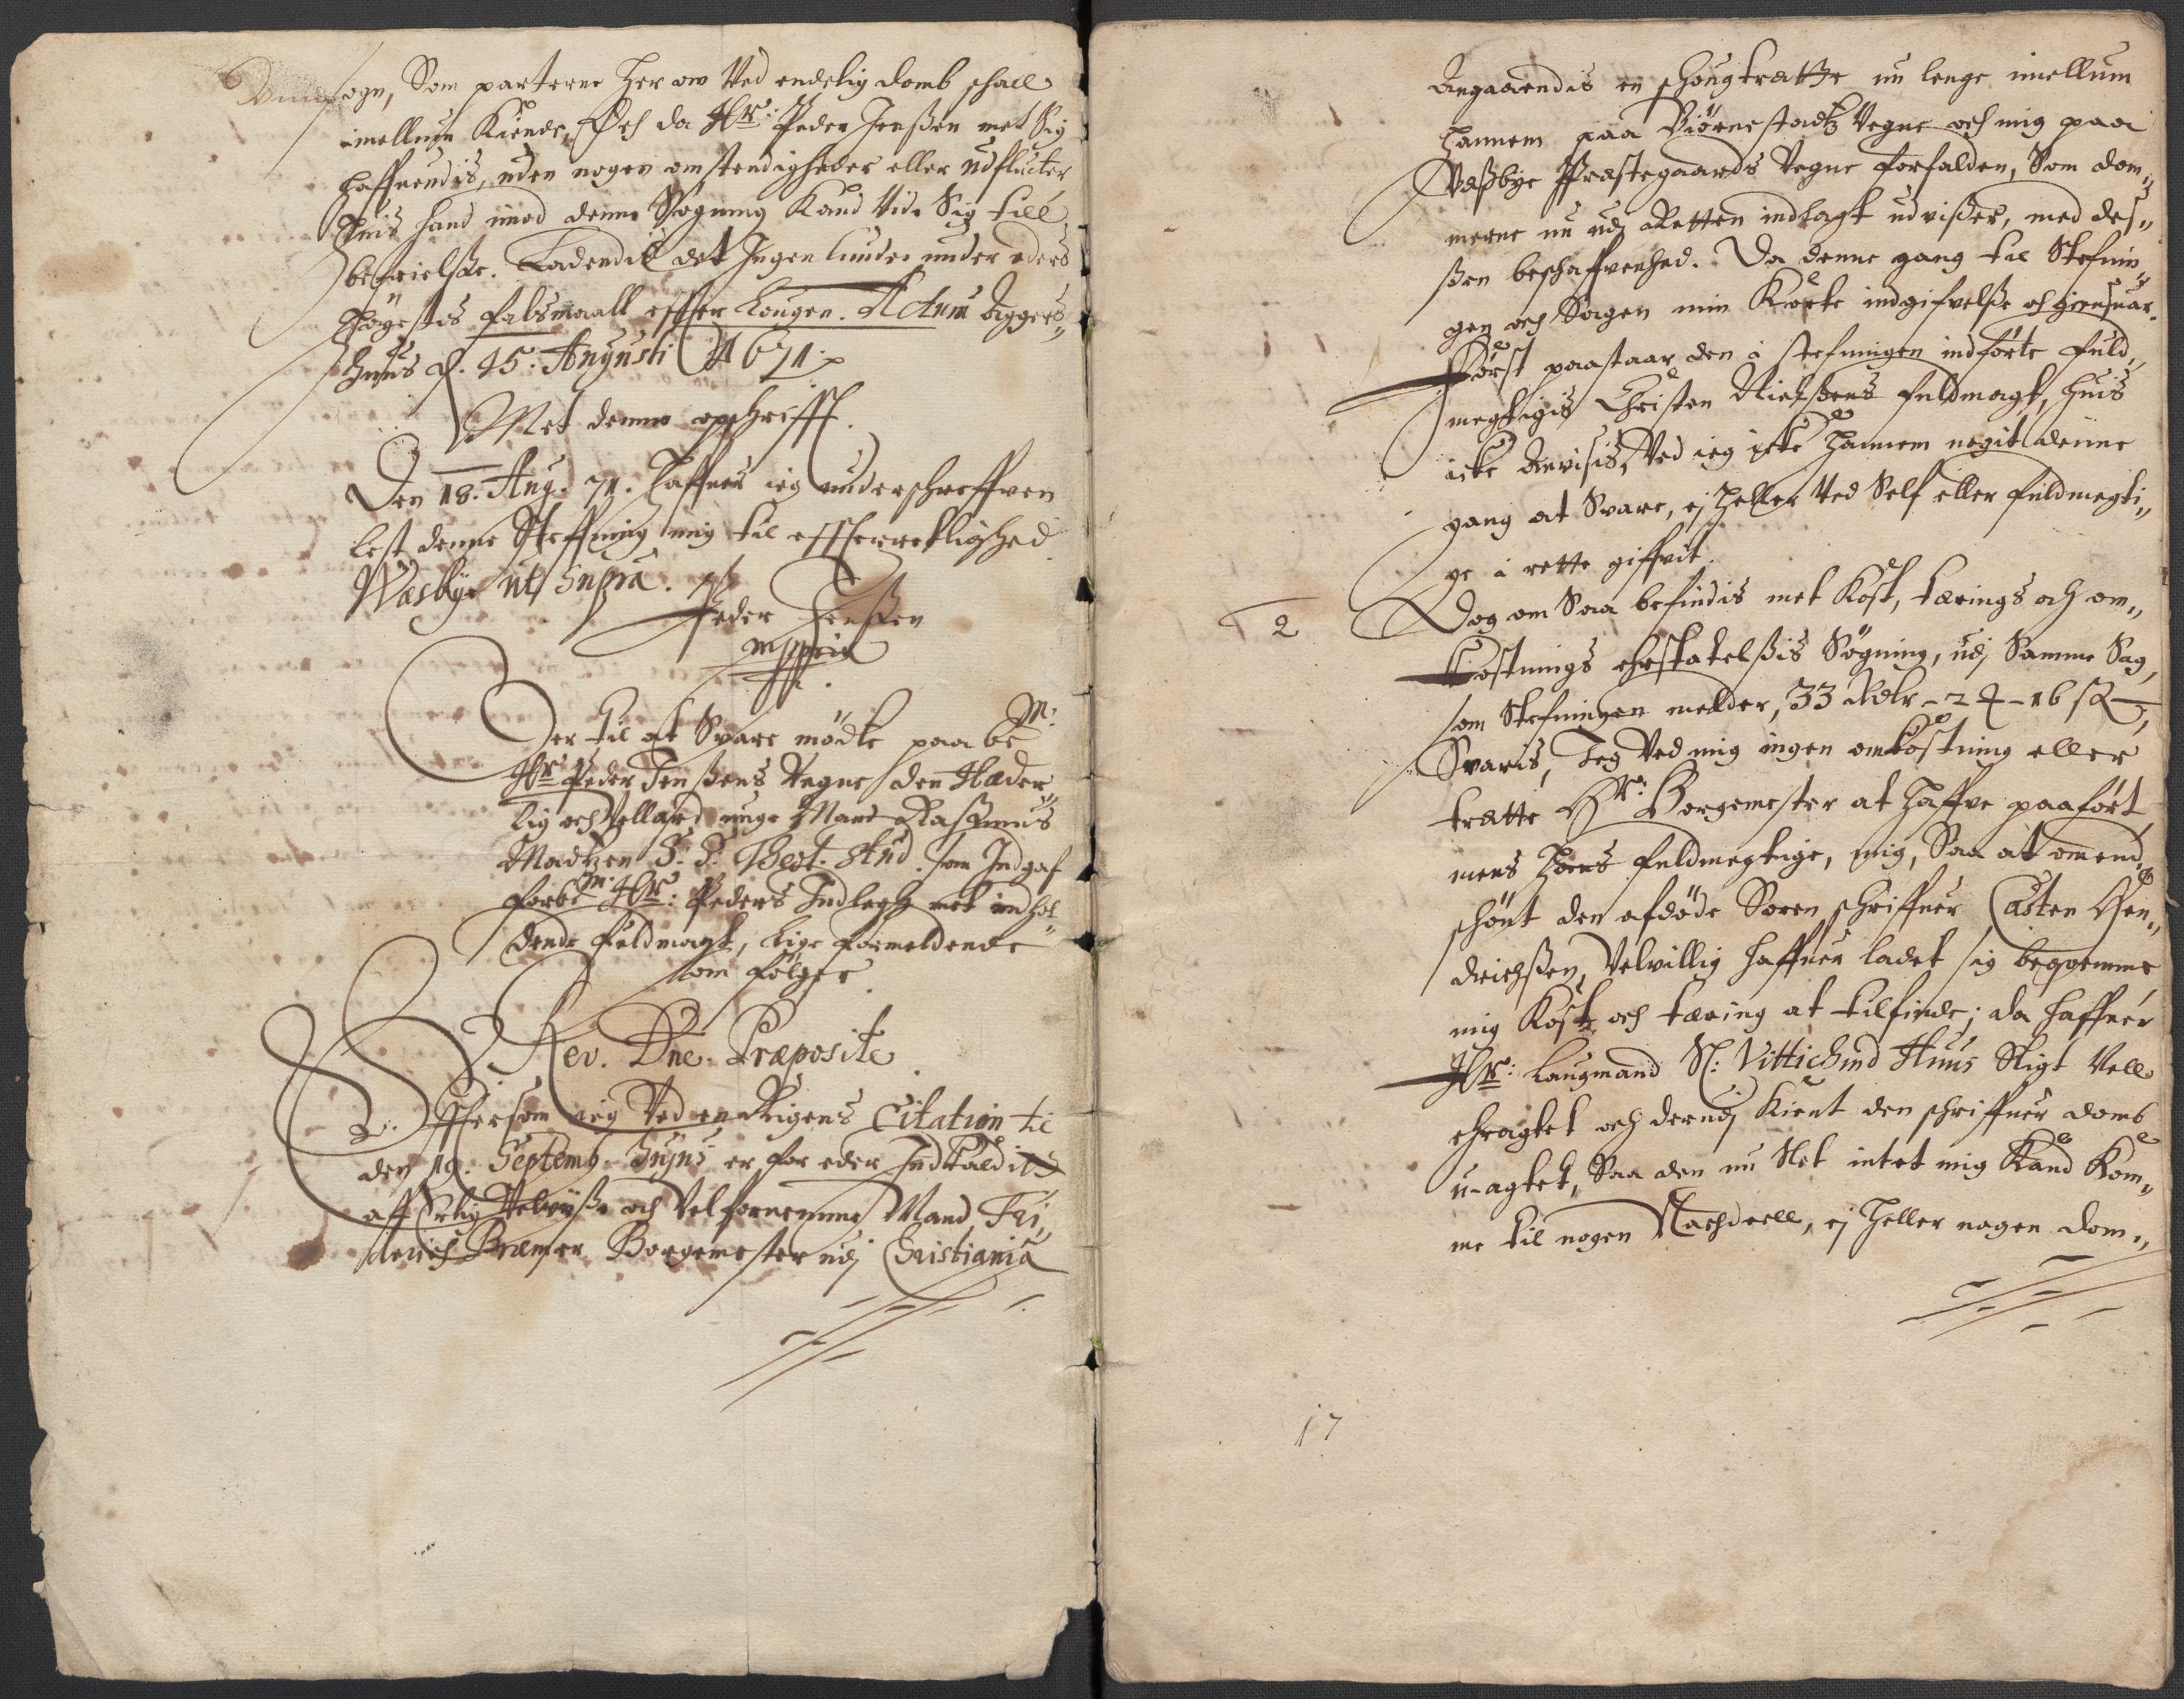 sogn, Som parterne Her om Ved endelig domb schall
imellum Kiende, Och da Hr: Peder Jenßen met Sig
haffuendis, uden nogen omstendigheder eller udflucter
Huis hand imod denne Søgning Kand Vide Sig till
befrielße. Ladendis det Ingen lunde under eders
Høgeste falsmaall efter Lougen. Actum Aggers„
Huus d. 15. Augusti 1671
Met denne opschrifft.
Den 18. Aug. 71. Haffuer ieg underschreffven
lest denne Steffning mig til efterrettlighed
Wæsbye ut supra.
Peder Jenßen
mppria
Der til at Svare mødte paa bem:
Hr: Peder Jenßens Vegne den Hæder„
lig och Vellærd unge Mand Raßmus
Madtzen S. S. Theol. Stud. som Indgaf
forbem: Hr: Peders Indlegh met indhol„
dende fuldmagt, lige formeldende
som følger.
Rev. Dne. Præposite
Effter som ieg Ved en Rigens Citation til
den 19. Septemb. Hujus er for eder Indkaldit
aff Erlig Velvyße och Velfornemme Mand, Fri„
derich Bremer Borgemester udj Christiania
Angaaendis en schougtrætte nu lenge imellum
Hannem paa Biørnestadtz Vegne och mig paa
Væßbye Præstegaards Vegne forfalden, Som dom„
merne nu udj Retten indlagt udvißer, med des„
ßen beschaffvenhed. Da denne gang til Stefnin„
gen och Sagen min Korte indgifvelße och giensuar.
Først paastaar den i stefningen indførte fuld„
megtigis Christen Nielßens fuldmagt, huis
icke Anvisis, Ved ieg icke Hannem nogit denne
gang at Svare, ej heller Ved Self eller fuldmegti„
ge i rette giffvit.
2 Dog om Saa befindis met Kost, tærings och om„
Kostnings erstatelßis Søgning, udj Samme Sag,
som Stefningen melder, 33 Rdlr - 2 ꝼ - 16 ß,
Svaris, Jeg Ved mig ingen omkostning eller
trætte Hr: Borgemester at Haffve paaført,
mens Hans fuldmegtige, mig, Saa at omend„
schønt den afdøde Soren schriffuer Casten Hen„
drichßen, Velvillig haffuer ladet sig beqvemme
mig Kost och tæring at tilfinde; da haffuer
Hr: Laugmand Sl: Vittichind Huus Sligt Vell
eragtet och derudj Kient den schriffuer domb
u-agtet, Saa den nu Slet intet mig Kand Kom„
me til nogen Nachdeell, ej Heller nogen dom„
17